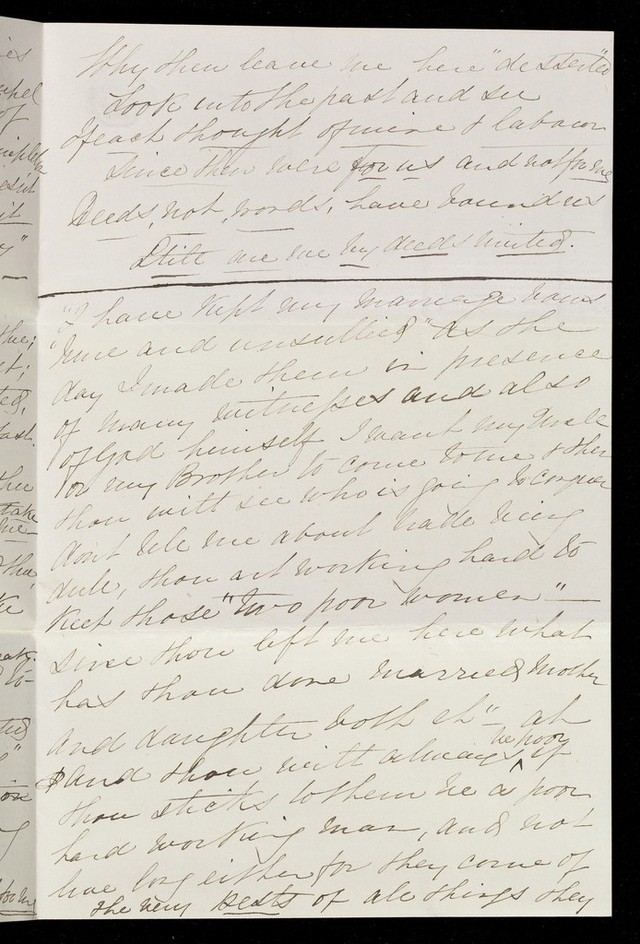 Why then leave me here "deserted"
Look into the past and see
If each thought of mine & labour
Since then were for us and not for me
Deeds, not words, have bound us
Still are we by deeds united.
"I have kept my marriage vows
"true and unsullied" as the
day I made them in presence
of many witnesses and also
of God himself I want my Uncle
or my Brother to come to me & then
thou will see who is going to conquer
dont tele me about trade being
dule, thou art working hard to
keet those "two poor women"—
since thou left me here what
has thou done married Mother
and daughter both eh"— ah
and thou will always be poor if
thou sticks to them be a poor
hard working man, and not
live long either for they come of
the very of ale things they